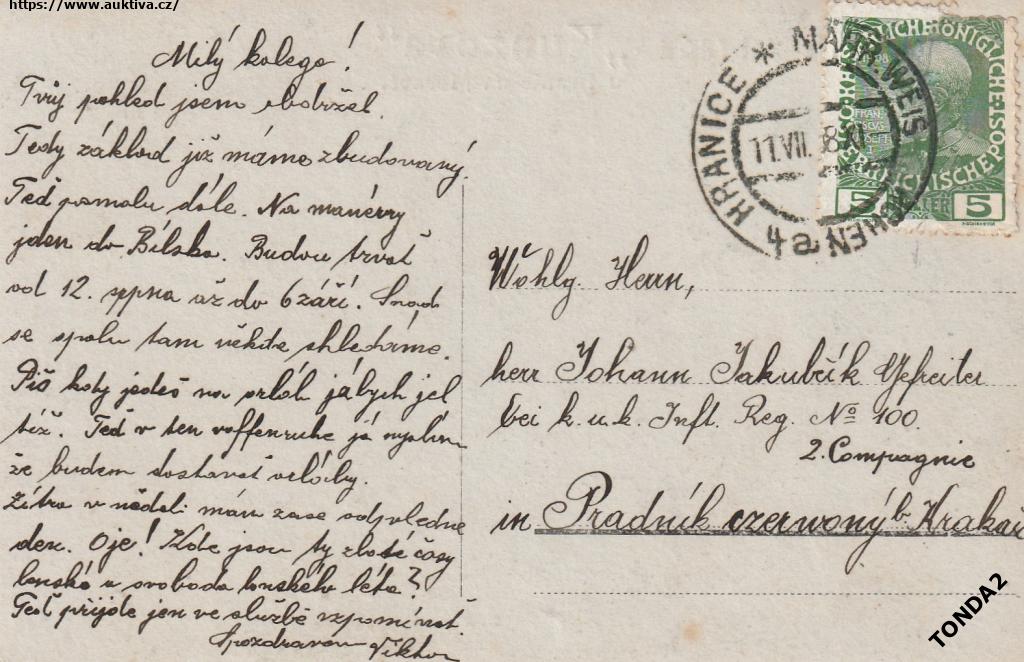 https://www.auktiva.cz/
Milý kolego!
Tvůj pohled jsem obdržel.
Tedy základ již máme zbudovaný.
Teď pomalu dále. Na manévry
jdem do Bílska. Budou trvat
od 12. srpna až do 6 září. Snad
se spolu tam někde shledáme.
Piš kdy jedeš na urlób já bych jel
též. Teď v ten vaffenruhe já myslím
že budem dostávat urlóby.
Zítra v neděli mám zase odpoledne
den. Oje! Kde jsou ty zlaté časy
lonské a svoboda lonského léta?
Teď přijde jen ve službě vzpomínat.
Spozdravem Viktor
HRANICE * MÄHR. WEISSKIRCHEN
11.VII. 8-
4a
5 5
Wohlg. Herrn,
herr Johann Jakubčík Gefreiter
bei k. u. k. Inft. Reg. No 100.
2. Compagnie
in Pradník czerwoný b Krakau
TONDA2